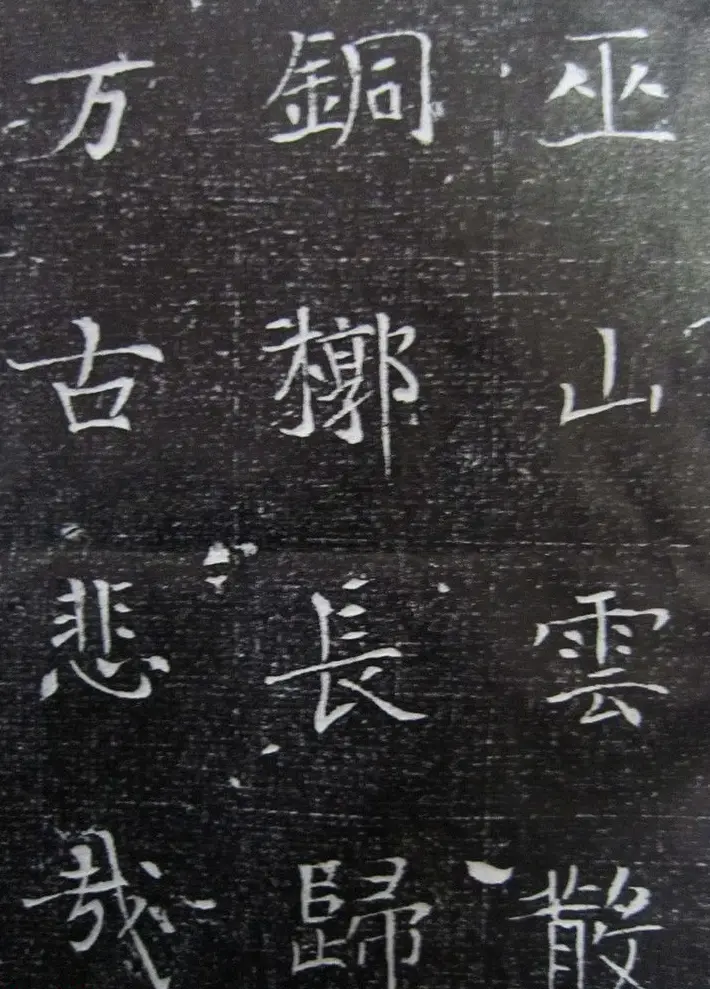 巫山雲散
銅槨長歸
万古悲哉